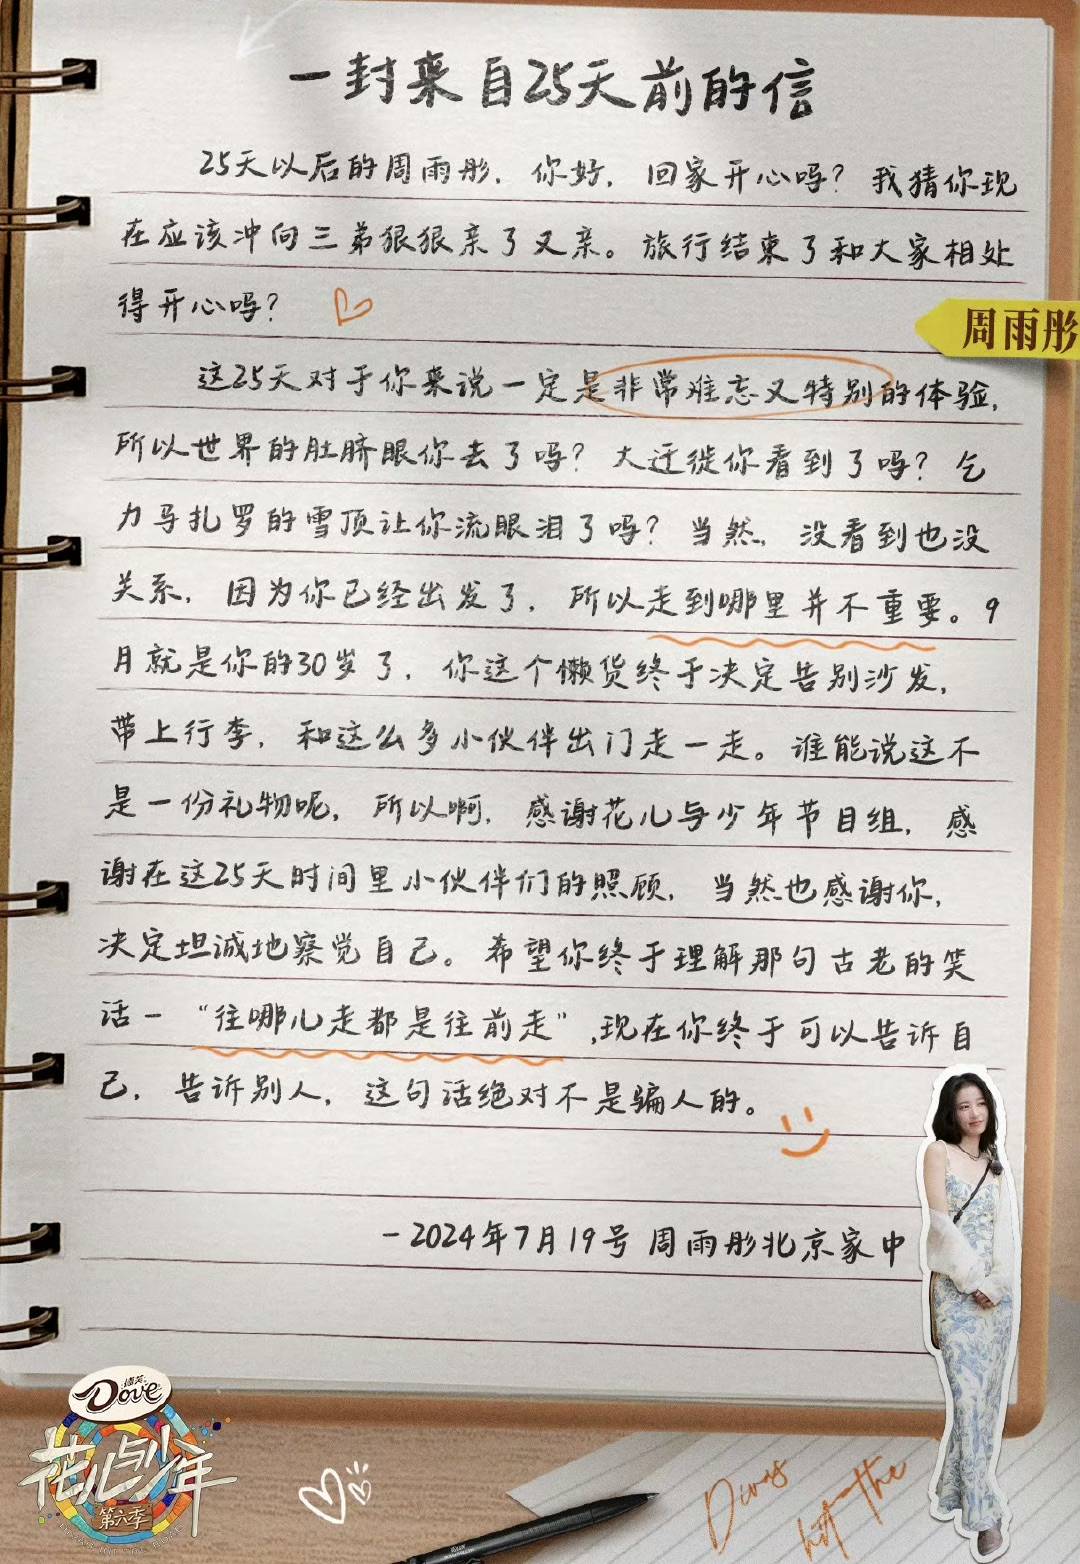 一封来自25天前的信
25天以后的周雨彤，你好，回家开心吗？我猜你现
在应该冲向三弟狠狠亲了又亲。旅行结束了和大家相处
得开心吗？
周雨彤
这25天对于你来说一定是非常难忘又特别的体验，
所以世界的肚脐眼你去了吗？大迁徙你看到了吗？乞
力马扎罗的雪顶让你流眼泪了吗？当然，没看到也没
关系，因为你已经出发了，所以走到哪里并不重要。9
月就是你的30岁了，你这个懒货终于决定告别沙发，
带上行李，和这么多小伙伴出门走一走。谁能说这不
是一份礼物呢，所以啊，感谢花儿与少年节目组，感
谢在这25天时间里小伙伴们的照顾，当然也感谢你，
决定坦诚地察觉自己。希望你终于理解那句古老的笑
话－“往哪儿走都是往前走”，现在你终于可以告诉自
己，告诉别人，这句话绝对不是骗人的。
－2024年7月19号 周雨彤北京家中
德芙
Dove
花儿与少年
第六季
the